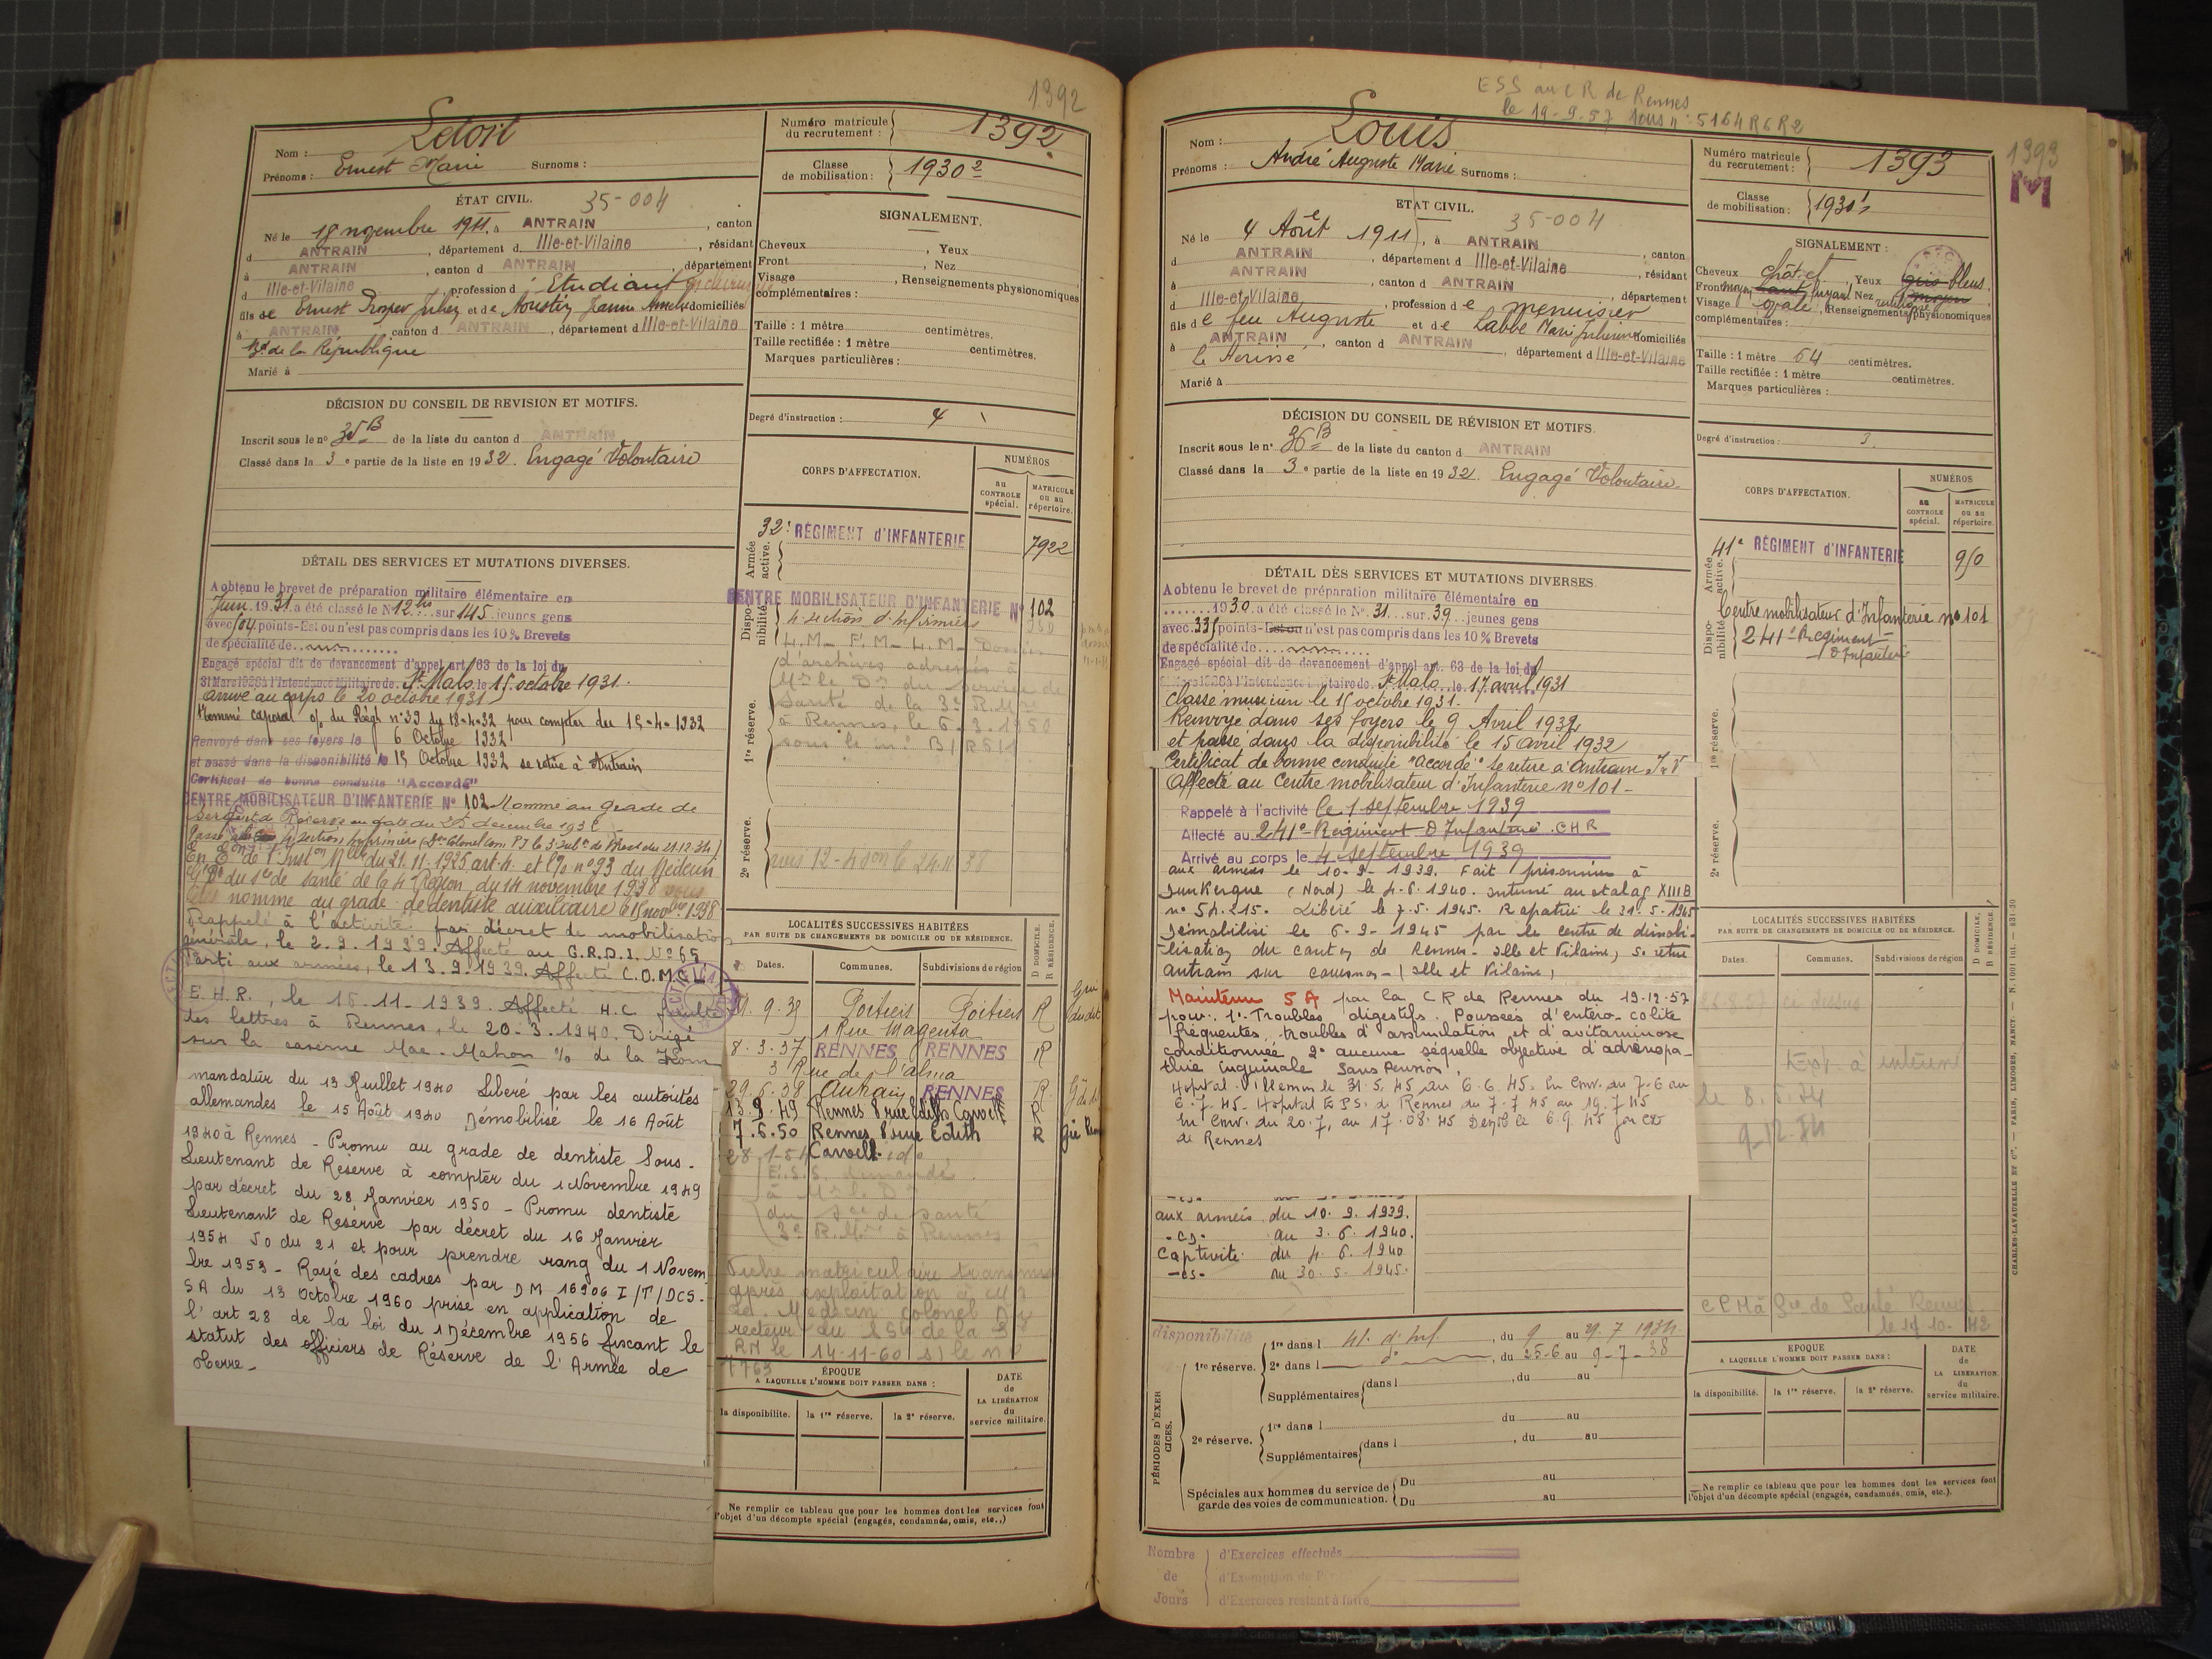 1392
Letoit
Nom :
Prénoms : Ernest Marie Surnoms :
Numéro matricule du recrutement : 1392
Classe de mobilisation : 1930 2
ÉTAT CIVIL. 35-004
Né le 18 novembre 1911, à ANTRAIN, canton
d ANTRAIN, département d Ille-et-Vilaine, résidant
à ANTRAIN, canton d ANTRAIN, département
d Ille-et-Vilaine, profession d Etudiant
fils de Ernest Prosper Julien et de Jeanne domiciliés
à ANTRAIN canton d ANTRAIN, département d Ille-et-Vilaine
Bd de la République
Marié à
SIGNALEMENT.
Cheveux , Yeux
Front , Nez
Visage , Renseignements physionomiques
complémentaires :
Taille : 1 mètre centimètres.
Taille rectifiée : 1 mètre centimètres.
Marques particulières :
Degré d'instruction : 4
DÉCISION DU CONSEIL DE REVISION ET MOTIFS.
Inscrit sous le n° 35 B de la liste du canton d ANTRAIN
Classé dans la 3e partie de la liste en 1932. Engagé Volontaire
CORPS D'AFFECTATION.
NUMÉROS
au CONTROLE spécial.
MATRICULE ou au répertoire.
Armée active.
32e RÉGIMENT d'INFANTERIE 7922
Disponibilité
CENTRE MOBILISATEUR D'INFANTERIE N° 102
4e section d'infirmiers
L.M. F.M. L.M. Dossier
d'archives adressés à
Mr le Dr du Service de
Santé de la 3e R.Mre
à Rennes, le 6.3.1950
1re réserve.
2e réserve.
DÉTAIL DES SERVICES ET MUTATIONS DIVERSES.
A obtenu le brevet de préparation militaire élémentaire en
Juin 1931 a été classé le N° 12 bis sur 145 jeunes gens
avec 504 points-Est ou n'est pas compris dans les 10 % Brevets
de spécialité de
Engagé spécial dit de devancement d'appel art. 63 de la loi du
31 Mars 1928 à l'Intendance Militaire de St Malo le 15 octobre 1931.
arrivé au corps le 20 octobre 1931
Nommé caporal o/ du Régt n° 39 du 18-4-32 pour compter du 15-4-1932
Renvoyé dans ses foyers le 6 Octobre 1932
et passé dans la disponibilité le 15 Octobre 1932 se retire à Antrain
Certificat de bonne conduite "Accordé"
CENTRE MOBILISATEUR D'INFANTERIE N° 102 Nommé au grade de
En Eon de l'Inston Mlle du 21.11.1925 art. 4. et l'o/ n° 93 du Médecin
du Sce de santé de la 4 Région du 14 novembre 1938
nommé au grade de dentiste auxiliaire le 15 novbre 1938
Rappelé à l'activité par décret de mobilisation
générale, le 2.9.1939. Affecté au G.R.D.I. N° 65
Parti aux armées, le 13.9.1939. Affecté C.O.M.C.
E.H.R., le 16-11-1939. Affecté H.C. faculté
des lettres à Rennes, le 20-3-1940. Dirigé
sur la caserne Mac-Mahon % de la Kom
mandatür du 13 Juillet 1940 Libéré par les autorités
allemandes le 15 Août 1940 Démobilisé le 16 Août
1940 à Rennes - Promu au grade de dentiste Sous-
Lieutenant de Réserve à compter du 1 Novembre 1949
par décret du 28 Janvier 1950 - Promu dentiste
Lieutenant de Réserve par décret du 16 Janvier
1954 JO du 21 et pour prendre rang du 1 Novem
bre 1953 - Rayé des cadres par DM 16906 I/T/DCS-
SA du 13 Octobre 1960 prise en application de
l'art 28 de la loi du 1 Décembre 1956 fixant le
statut des officiers de Réserve de l'Armée de
Terre -
LOCALITÉS SUCCESSIVES HABITÉES
PAR SUITE DE CHANGEMENTS DE DOMICILE OU DE RÉSIDENCE.
Dates. Communes. Subdivisions de région D DOMICILE. R RÉSIDENCE.
Poitiers Poitiers R
1 Rue Magenta
8.3.37 RENNES RENNES R
3 Rue de l'alma
29.6.38 Antrain RENNES R
13.9.49 Rennes 8 rue Edith Cavell R
7.6.50 Rennes 8 rue Edith R
28.1.51 Cavell do
E.S.S. demandé
à Mr le Dr
du Sce de santé
3e R.Mre à Rennes
Fiche matriculaire transmise
après exploitation à Mr
Le Médecin Colonel Di
recteur du SS de la 3e
RM le 14-11-60 s/ le n°
1769
ÉPOQUE
A LAQUELLE L'HOMME DOIT PASSER DANS :
la disponibilité. la 1re réserve. la 2e réserve.
DATE de LA LIBÉRATION du service militaire.
Ne remplir ce tableau que pour les hommes dont les services font
l'objet d'un décompte spécial (engagés, condamnés, omis, etc.,)
ESS au CR de Rennes
le 19-9-57 sous n° 5164 R6R2
1393
M
Nom : Louis
Prénoms : André Auguste Marie Surnoms :
Numéro matricule du recrutement : 1393
Classe de mobilisation : 1930 1
ETAT CIVIL. 35-004
Né le 4 Août 1911, à ANTRAIN, canton
d ANTRAIN, département d Ille-et-Vilaine, résidant
à ANTRAIN, canton d ANTRAIN, département
d Ille-et-Vilaine, profession de menuisier
fils de feu Auguste et de Labbé Marie Julienne domiciliés
à ANTRAIN, canton d ANTRAIN, département d Ille-et-Vilaine
Marié à
SIGNALEMENT :
Cheveux chât. cl , Yeux gris bleus.
Front moyen haut fuyant Nez rectiligne moyen
Visage ovale, Renseignements physionomiques
complémentaires :
Taille : 1 mètre 64 centimètres.
Taille rectifiée : 1 mètre centimètres.
Marques particulières :
Degré d'instruction : 3.
DÉCISION DU CONSEIL DE RÉVISION ET MOTIFS.
Inscrit sous le n° 36 B de la liste du canton d ANTRAIN
Classé dans la 3e partie de la liste en 1932. Engagé Volontaire.
CORPS D'AFFECTATION.
NUMÉROS
au CONTROLE spécial.
MATRICULE ou au répertoire.
Armée active.
41e RÉGIMENT d'INFANTERIE
Disponibilité
Centre mobilisateur d'Infanterie n° 101
241e Régiment
d'Infanterie
1re réserve.
2e réserve.
DÉTAIL DES SERVICES ET MUTATIONS DIVERSES.
A obtenu le brevet de préparation militaire élémentaire en
1930 a été classé le N° 31 sur 39 jeunes gens
avec 335 points-Est ou n'est pas compris dans les 10 % Brevets
de spécialité de
Engagé spécial dit de devancement d'appel art. 63 de la loi du
31 Mars 1928 à l'Intendance Militaire de St Malo le 17 avril 1931
classé musicien le 15 octobre 1931.
Renvoyé dans ses foyers le 9 Avril 1932
et passé dans la disponibilité le 15 avril 1932
Certificat de bonne conduite "accordé" se retire à Antrain I-V
Affecté au Centre mobilisateur d'Infanterie n° 101 -
Rappelé à l'activité le 1 septembre 1939
Affecté au 241e Régiment d'Infanterie. CHR
Arrivé au corps le 4 septembre 1939
aux armées le 10-9-1939. Fait prisonnier à
Dunkerque (Nord) le 4.6.1940. interné au stalag XIII B
n° 54.215. Libéré le 7.5.1945. Rapatrié le 31.5.1945
Démobilisé le 6-9-1945 par le centre de démobi-
lisation du canton de Rennes - Ille et Vilaine, se retire
Antrain sur couesnon - (Ille et Vilaine)
Maintenu SA par la CR de Rennes du 19-12-57
pour : 1° Troubles digestifs. Poussées d'entéro-colite
fréquentes, troubles d'assimilation et d'avitaminose
conditionnée 2° aucune séquelle objective d'adénopa-
thie inguinale Sans Pension.
Hôpital Villemin le 31.5.45 au 6.6.45. En Conv. du 7-6 au
6.7.45. Hôpital EPS. de Rennes du 7.7.45 au 19.7.45
En Conv. du 20.7. au 17.08.45 Démob le 6.9.45 par CD
de Rennes
aux armées du 10.9.1939.
-cs- au 3.6.1940.
Captivité du 4.6.1940
-cs- au 30.5.1945.
LOCALITÉS SUCCESSIVES HABITÉES
PAR SUITE DE CHANGEMENTS DE DOMICILE OU DE RÉSIDENCE.
Dates. Communes. Subdivisions de région D DOMICILE. R RÉSIDENCE.
ci dessus
le 8.5.34
le 19 10. 42
disponibilité
PÉRIODES D'EXERCICES.
1re réserve. 1re dans l 41. d'Inf. , du 9 au 29.7 1934
2e dans l do , du 25-6 au 9-7-38
Supplémentaires dans l , du au
2e réserve. 1re dans l du au
Supplémentaires dans l , du au
Spéciales aux hommes du service de garde des voies de communication. Du au
Du au
EPOQUE
A LAQUELLE L'HOMME DOIT PASSER DANS :
la disponibilité. la 1re réserve. la 2e réserve.
DATE de LA LIBÉRATION du service militaire.
Ne remplir ce tableau que pour les hommes dont les services font
l'objet d'un décompte spécial (engagés, condamnés, omis, etc.).
CHARLES-LAVAUZELLE ET Cie. — PARIS, LIMOGES, NANCY.
Nombre de Jours
d'Exercices effectués
d'Exemption de
d'Exercices restant à faire